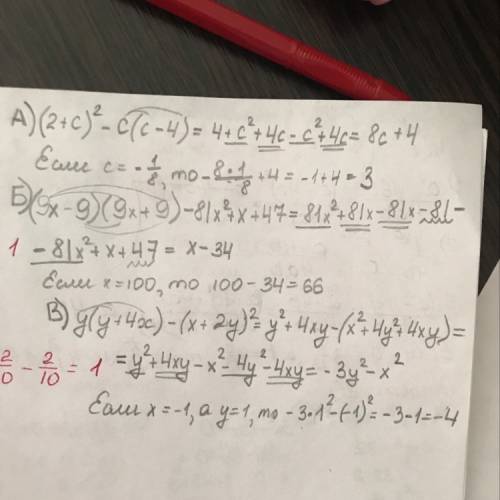 А) (2+c)² - c(c-4) = 4+c²+4c-c²+4c = 8c+4
Если c = -1/8, то -8·1/8 +4 = -1+4 = 3
Б) (9x-9)(9x+9)-81x²+x+47 = 81x²+81x-81x-81-
1 -81x²+x+47 = x-34
Если x=100, то 100-34=66
В) y(y+4x)-(x+2y)² = y²+4xy-(x²+4y²+4xy) =
2/0 - 2/10 = 1 = y²+4xy-x²-4y²-4xy = -3y²-x²
Если x=-1, а y=1, то -3·1²-(-1)² = -3-1=-4